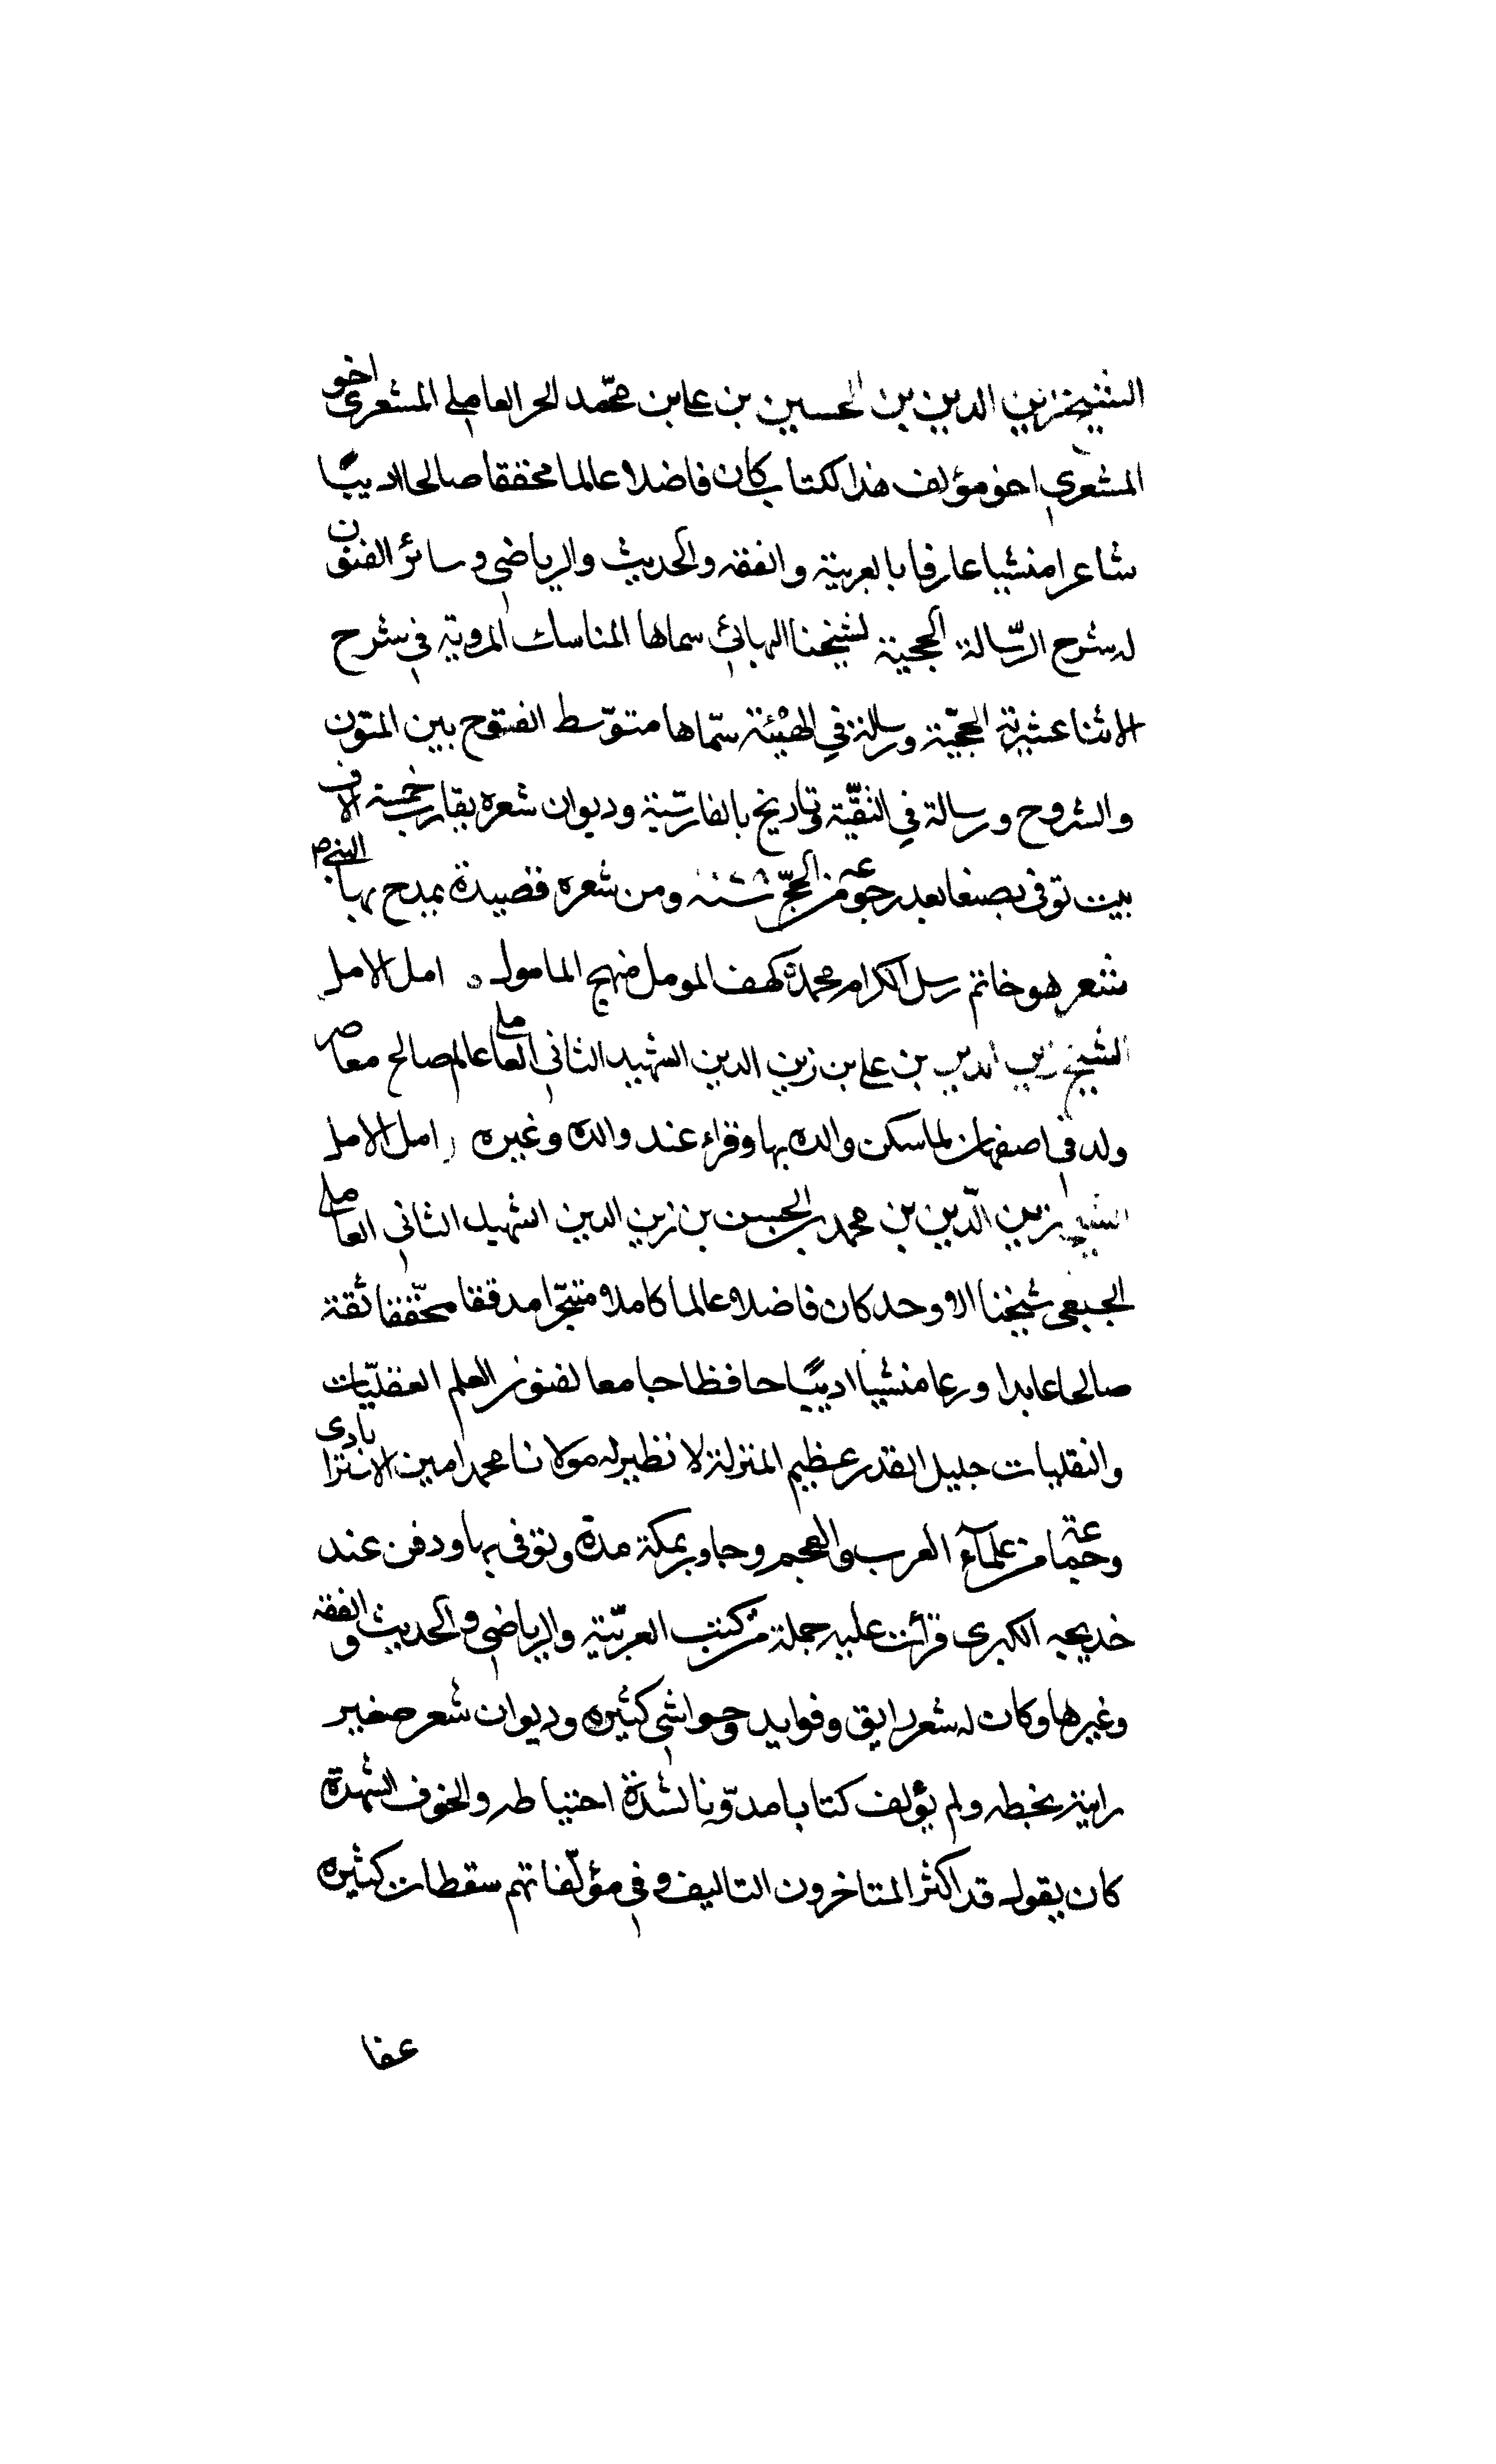 الشيخ زين الدين بن الحسين بن علي بن محمّد الحر العاملي المشعرى اخو
المشعري اخو مؤلف هذا لكتاب كان فاضلا عالما محققا صالحا اديبًا
شاعرا منشيا عارفا بالعربية والفقه والحديث والرياضي وسائر الفنون
له شرح الرّسالة الحجية لشيخنا البهائي سماها المناسك المروية في شرح
الاثنا عشرية الحجّية ورسالة في الهيئة سمّاها متوّسط الفتوح بين المتون
والشروح ورسالة في التقيّة وتاريخ بالفارسّية وديوان شعره يقارب خمسة الاف
بيت توفى بصنعا بعد رجوعه من الحجّ سنة ١٠٧٨ ومن شعره قصيدة يمدح بها النبي ص
شعر هو خاتم رسل الكرام محمد كهف المومل منهج المامول ٥ امل الامل
الشيخ زين الدين بن علي بن زين الدين الشهيد الثاني العاملي عالم صالح معاصر
ولد في اصفهان لما سكن والده بها وقراء عند والده وغيره امل الامل
الشيخ زين الّدين بن محمد بن الحسن بن زين الدين الشهيد الثاني العاملي
الجبعي شيخنا الاوحد كان فاضلا عالما كاملا متبحّرا مدققا محقّقا ثقة
صالحا عابدا ورعا منشيا اديبًا حافظا جامعا لفنون العلم العقليّات
والنقليات جليل القدر عظيم المنزلة لا نظير له مولانا محمد امين الاسترابادى
وجماعة من علمآء العرب والعجم وجاور بمكة مدة وتوفى بها ودفن عند
خديجه الكبرى قرأت عليه جملة من كتب العربيّة والرياضي والحديث والفقه
وغيرها وكان له شعر رايق وفوايد وحواشي كثيره وديوان شعر صغير
رايته بخطه ولم يؤلف كتابا مدوّنا لشدة احتياطه والخوف الشهرة
كان يقول قد اكثر المتاخرون التاليف وفي مؤلّفاتهم سقطات كثيره
عفا